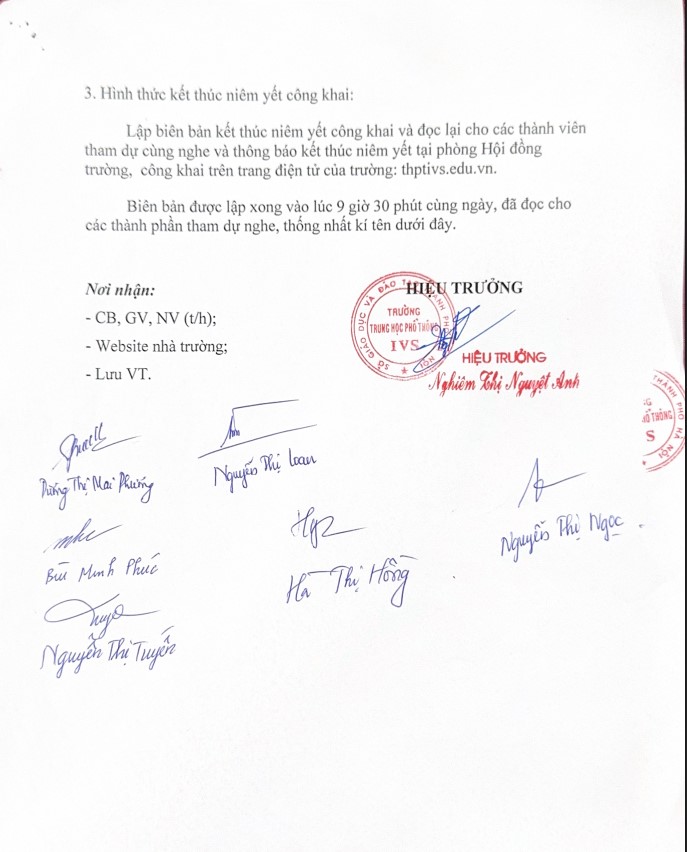 3. Hình thức kết thúc niêm yết công khai:
Lập biên bản kết thúc niêm yết công khai và đọc lại cho các thành viên
tham dự cùng nghe và thông báo kết thúc niêm yết tại phòng Hội đồng
trường, công khai trên trang điện tử của trường: thptivs.edu.vn.
Biên bản được lập xong vào lúc 9 giờ 30 phút cùng ngày, đã đọc cho
các thành phần tham dự nghe, thống nhất kí tên dưới đây.
Nơi nhận:
- CB, GV, NV (t/h);
- Website nhà trường;
- Lưu VT.
HIỆU TRƯỞNG
SỞ GIÁO DỤC VÀ ĐÀO TẠO THÀNH PHỐ
NỘI
TRƯỜNG
TRUNG HỌC PHỔ THÔNG
IVS
HIỆU TRƯỞNG
Nghiêm Thị Nguyệt Anh
THÀNH PHỐ HÀ NỘI
NG
HỔ THÔNG
S
Thị Mai Phương
Nguyễn Thị Loan
Nguyễn Thị Ngọc
Bùi Minh Phúc
Hà Thị Hồng
Nguyễn Thị Tuyến